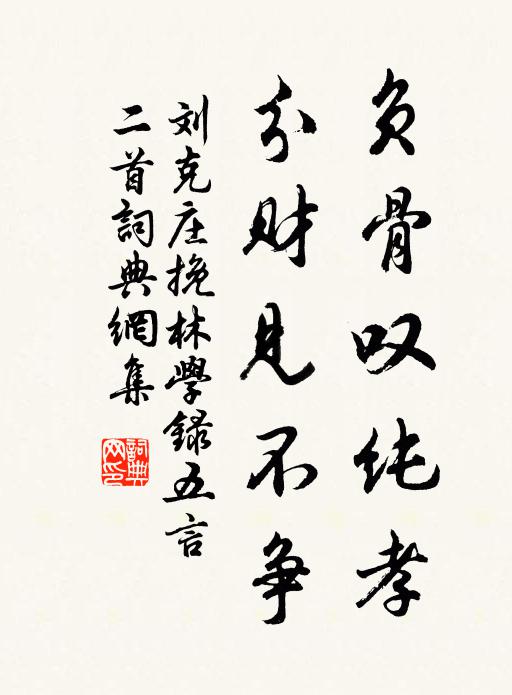 负骨叹纯孝
分财见不争
刘克庄挽林学録五言
二首詞典網集
詞典
网印